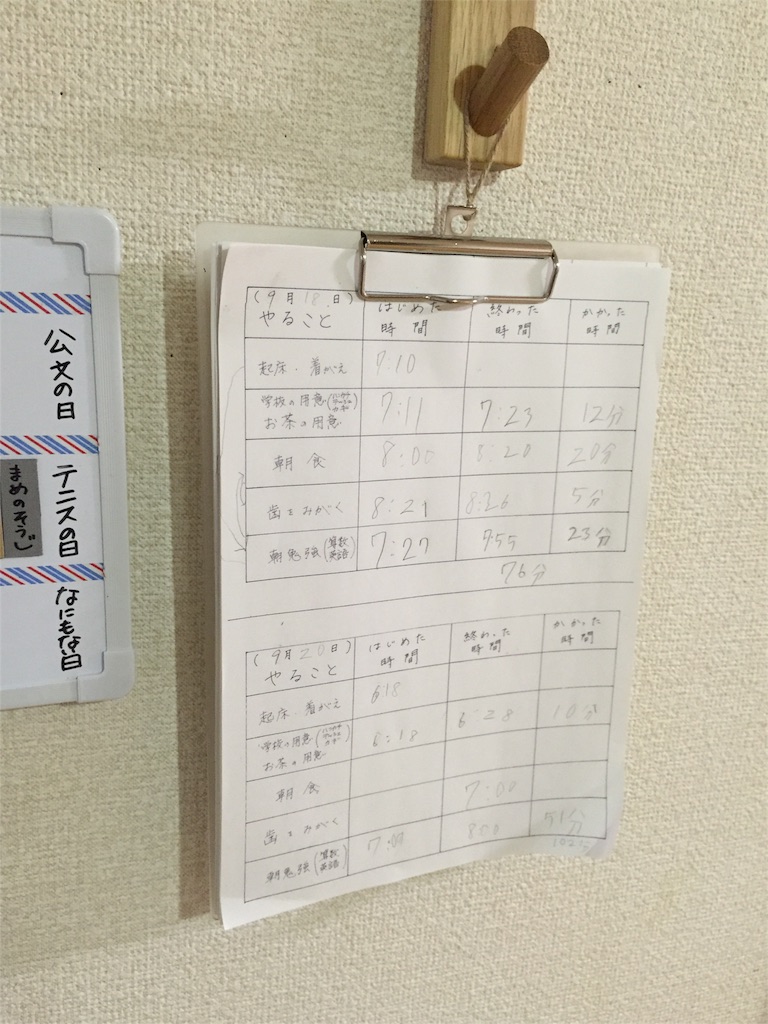 公文の日
テニスの日
まめのそうじ
なにもな日
(9月18日)
やること
はじめた
時間
終わった
時間
かかった
時間
起床・着がえ 7:10
学校の用意
お茶の用意 7:11 7:23 12分
朝食 8:00 8:20 20分
歯をみがく 8:21 8:26 5分
朝勉強(算数 英語) 7:27 755 23分
76分
(9月20日)
やること
はじめた
時間
終わった
時間
かかった
時間
起床・着がえ 618
学校の用意
お茶の用意 6:18 6:28 10分
朝食 7:00
歯をみがく
朝勉強(算数 英語) 51分